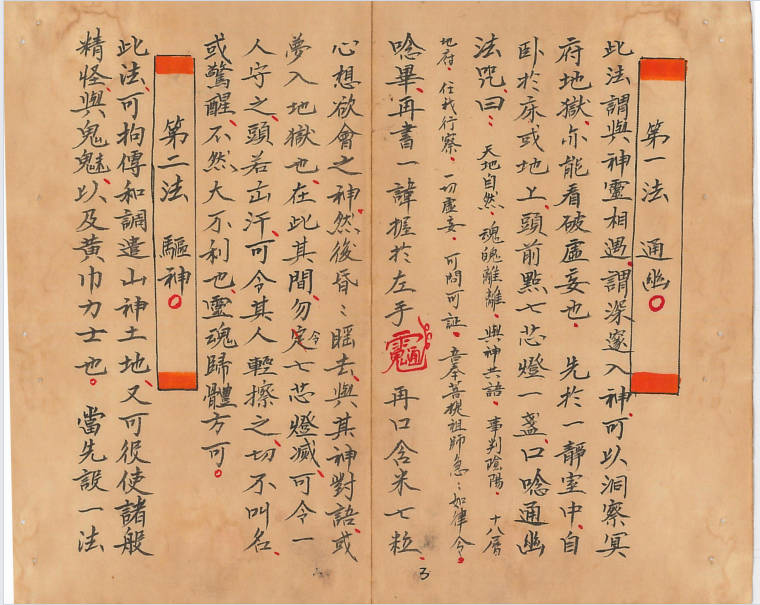 第一法 通幽。
此法謂與神靈相遇、謂深邃入神、可以洞察冥
府地獄、亦能看破虛妄也、先於一靜室中、自
卧於床或地上、頭前點七芯燈一盞、口唸通幽
法咒、曰：天地自然、魂魄離離、與神共語、事判陰陽、十八層
地府、任我行察、一切虛妄、可問可証、吾奉菩提祖師急：如律令。
唸畢再書一諱握於左手 再口含米七粒、
心想欲會之神、然後昏：睡去、與其神對語、或
夢入地獄也、在此其間、勿令七芯燈滅、可令一
人守之、頭若出汗、可令其人輕擦之、切不叫名、
或驚醒、不然大不利也、靈魂歸體方可。
第二法 驅神。
此法、可拘傳和調遣山神土地、又可役使諸般
精怪、與鬼魅、以及黄巾力士也。當先設一法
3